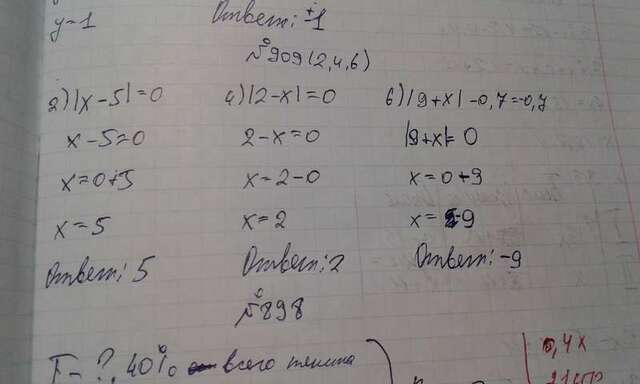 y=1
Ответ: ±1
№909 (2,4,6)
2) |x-5|=0
x-5=0
x=0+5
x=5
Ответ: 5
4) |2-x|=0
2-x=0
x=2-0
x=2
Ответ: 2
6) |9+x|-0,7=-0,7
|9+x|=0
x=0+9
x=-9
Ответ: -9
№898
I-? 40% всего
0,4x